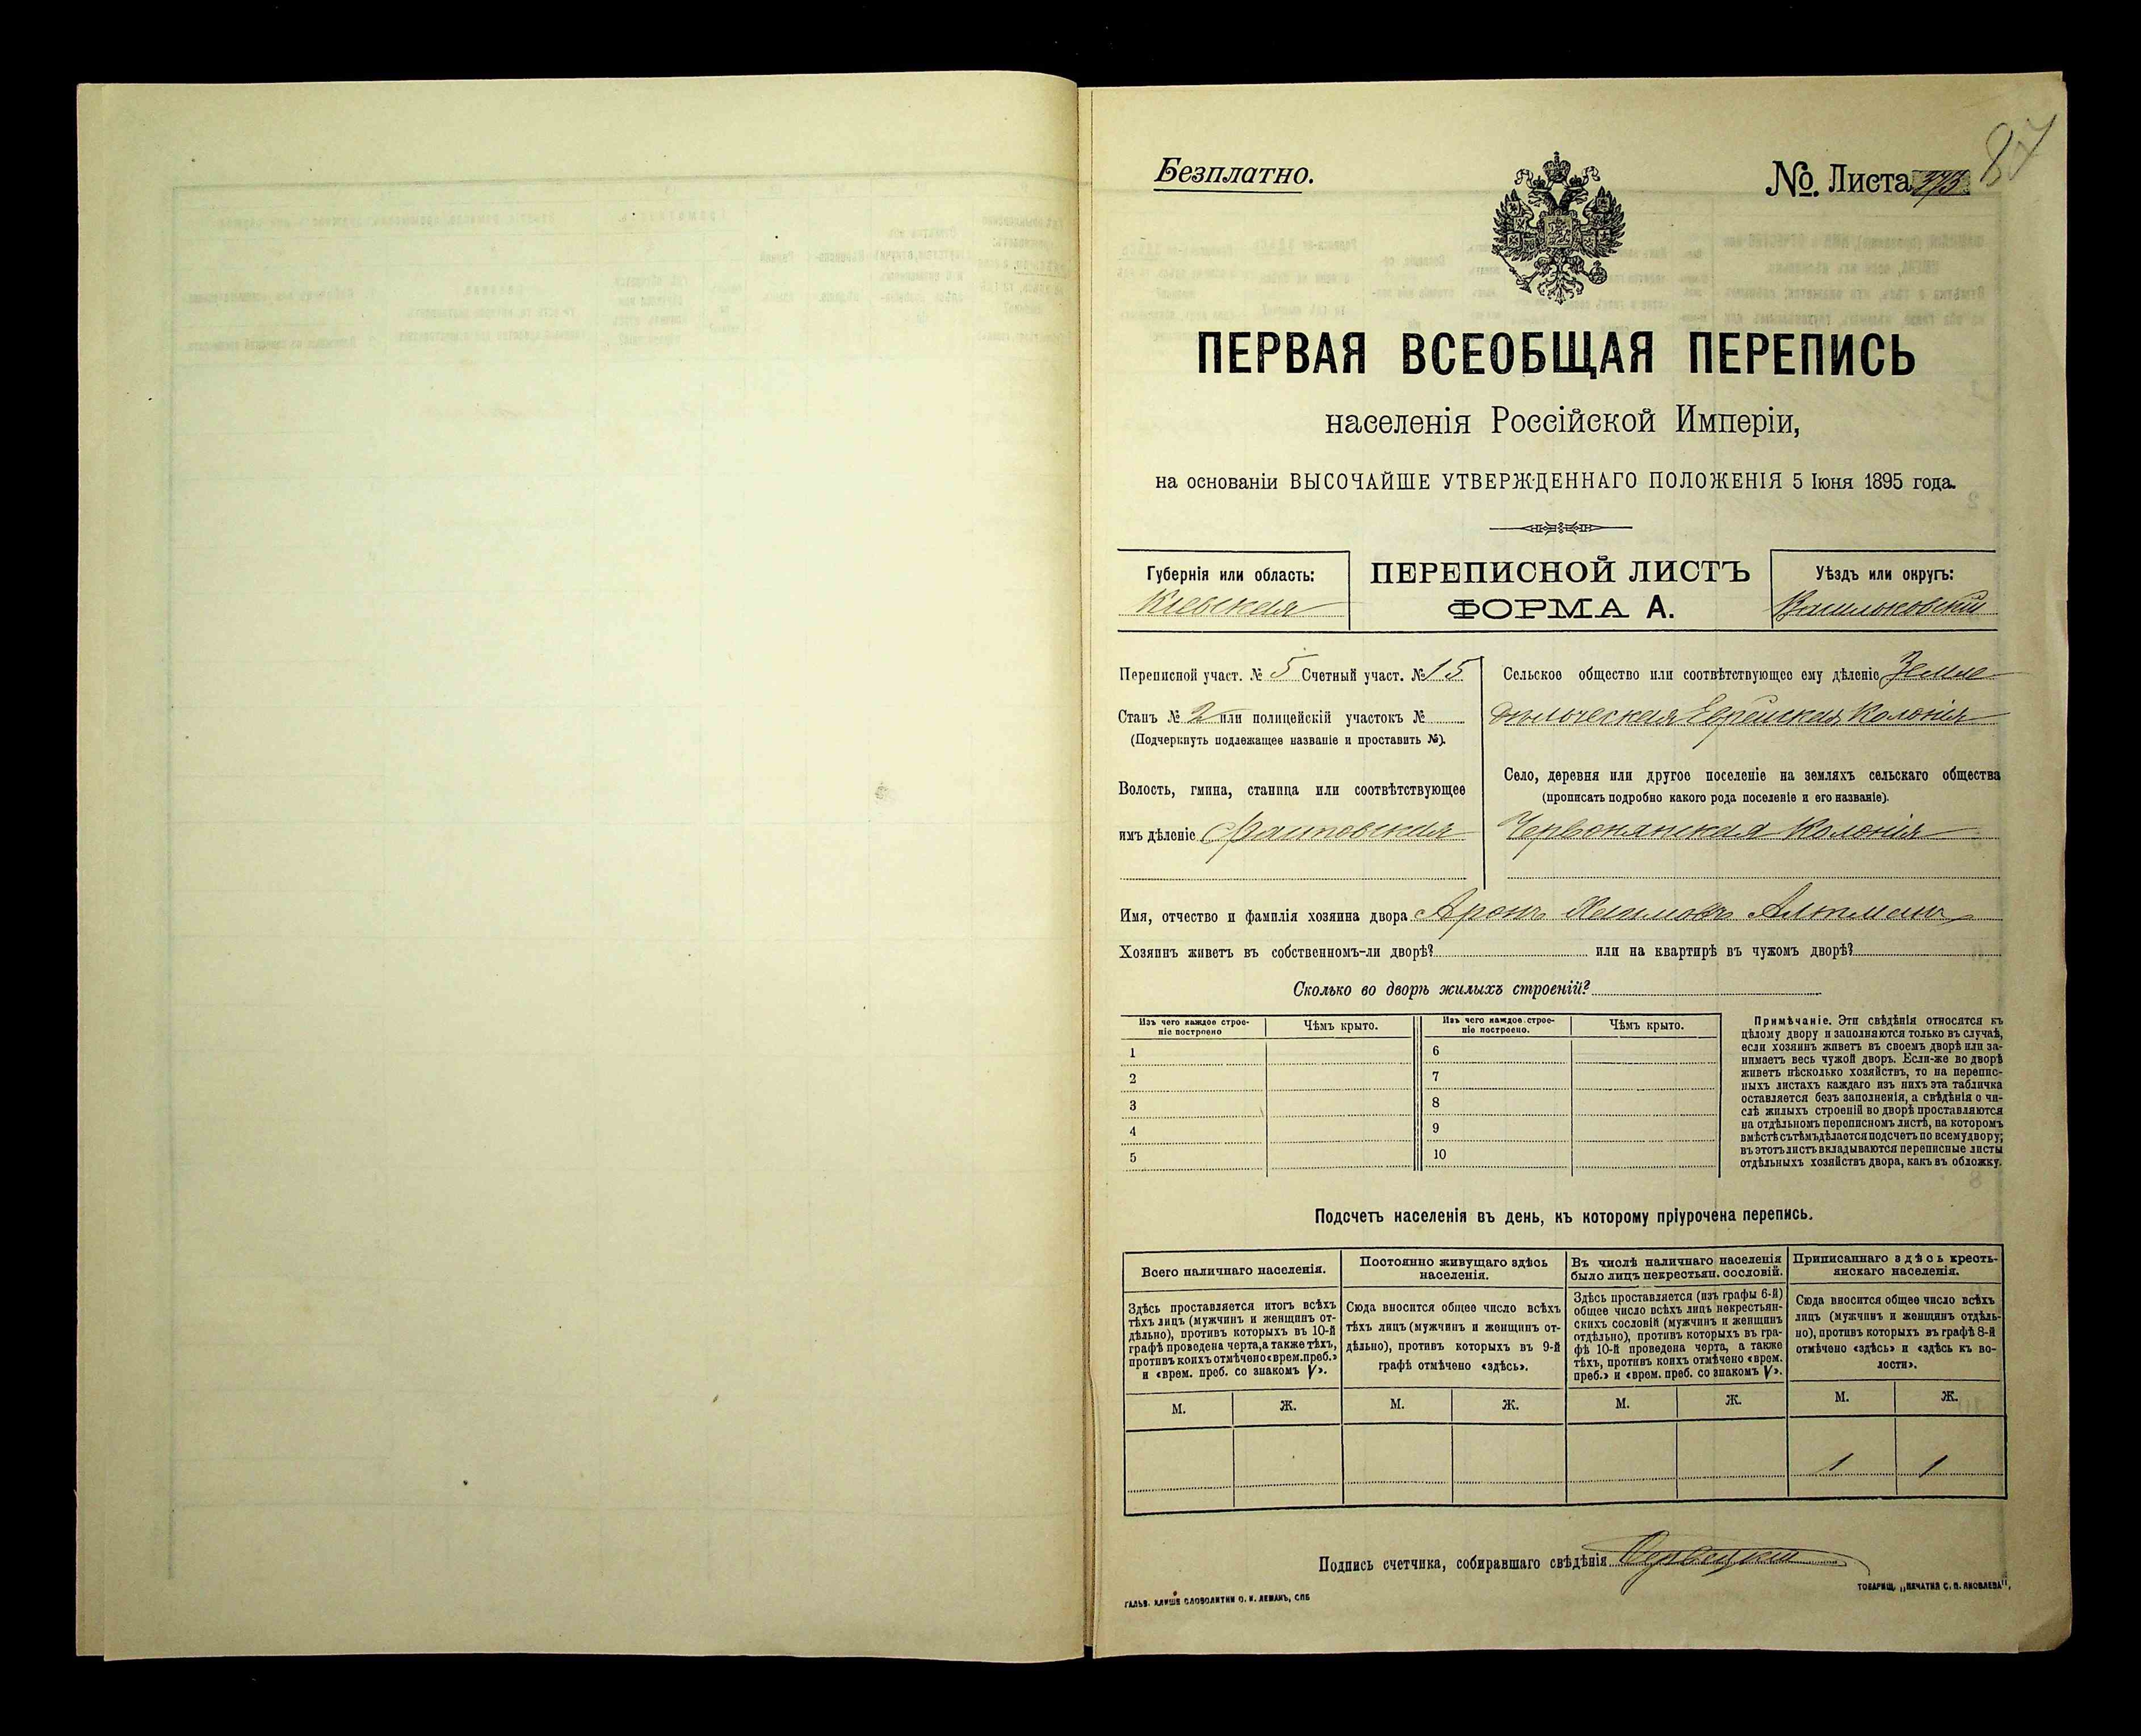 87
Безплатно.
№ Листа 373
ПЕРВАЯ ВСЕОБЩАЯ ПЕРЕПИСЬ
населенія Россійской Имперіи,
на основаніи ВЫСОЧАЙШЕ УТВЕРЖДЕННАГО ПОЛОЖЕНІЯ 5 Іюня 1895 года.
Губернія или область:
Кіевская
ПЕРЕПИСНОЙ ЛИСТЪ
ФОРМА А.
Уѣздъ или округъ:
Васильковскій
Переписной участ. № 5 Счетный участ. № 15
Станъ № 2 или полицейскій участокъ №
(Подчеркнуть подлежащее названіе и проставить №).
Волость, гмина, станица или соотвѣтствующее
имъ дѣленіе
Сельское общество или соотвѣтствующее ему дѣленіе Земле
дѣльческая Еврейская Колонія
Село, деревня или другое поселеніе на земляхъ сельскаго общества
(прописать подробно какого рода поселеніе и его названіе).
Червонянская Колонія
Имя, отчество и фамилія хозяина двора Аронъ Хаимовъ Альтманъ
Хозяинъ живетъ въ собственномъ-ли дворѣ? или на квартирѣ въ чужомъ дворѣ?
Сколько во дворѣ жилыхъ строеній?
Изъ чего каждое строе-
ніе построено
Чѣмъ крыто.
Изъ чего каждое строе-
ніе построено.
Чѣмъ крыто.
1
2
3
4
5
6
7
8
9
10
Примѣчаніе. Эти свѣдѣнія относятся къ
цѣлому двору и заполняются только въ случаѣ,
если хозяинъ живетъ въ своемъ дворѣ или за-
нимаетъ весь чужой дворъ. Если-же во дворѣ
живетъ нѣсколько хозяйствъ, то на перепис-
ныхъ листахъ каждаго изъ нихъ эта табличка
оставляется безъ заполненія, а свѣдѣнія о чи-
слѣ жилыхъ строеній во дворѣ проставляются
на отдѣльномъ переписномъ листѣ, на которомъ
вмѣстѣ съ тѣмъ дѣлается подсчетъ по всему двору;
въ этотъ листъ вкладываются переписные листы
отдѣльныхъ хозяйствъ двора, какъ въ обложку.
Подсчетъ населенія въ день, къ которому пріурочена перепись.
Всего наличнаго населенія.
Здѣсь проставляется итогъ всѣхъ
тѣхъ лицъ (мужчинъ и женщинъ от-
дѣльно), противъ которыхъ въ 10-й
графѣ проведена черта, а также тѣхъ,
противъ коихъ отмѣчено «врем. преб.»
и «врем. преб. со знакомъ V».
М. Ж.
Постоянно живущаго здѣсь
населенія.
Сюда вносится общее число всѣхъ
тѣхъ лицъ (мужчинъ и женщинъ от-
дѣльно), противъ которыхъ въ 9-й
графѣ отмѣчено «здѣсь».
М. Ж.
Въ числѣ наличнаго населенія
было лицъ некрестьян. сословій.
Здѣсь проставляется (изъ графы 6-й)
общее число всѣхъ лицъ некрестьян-
скихъ сословій (мужчинъ и женщинъ
отдѣльно), противъ которыхъ въ гра-
фѣ 10-й проведена черта, а также
тѣхъ, противъ коихъ отмѣчено «врем.
преб.» и «врем. преб. со знакомъ V».
М. Ж.
Приписаннаго здѣсь кресть-
янскаго населенія.
Сюда вносится общее число всѣхъ
лицъ (мужчинъ и женщинъ отдѣль-
но), противъ которыхъ въ графѣ 8-й
отмѣчено «здѣсь» и «здѣсь къ во-
лости».
М. Ж.
1 1
Подпись счетчика, собиравшаго свѣдѣнія
ГАЛЬВ. КЛИШЕ СЛОВОЛИТНИ О. И. ЛЕМАНЪ, СПБ
ТОВАРИЩ. „ПЕЧАТНЯ С. П. ЯКОВЛЕВА",